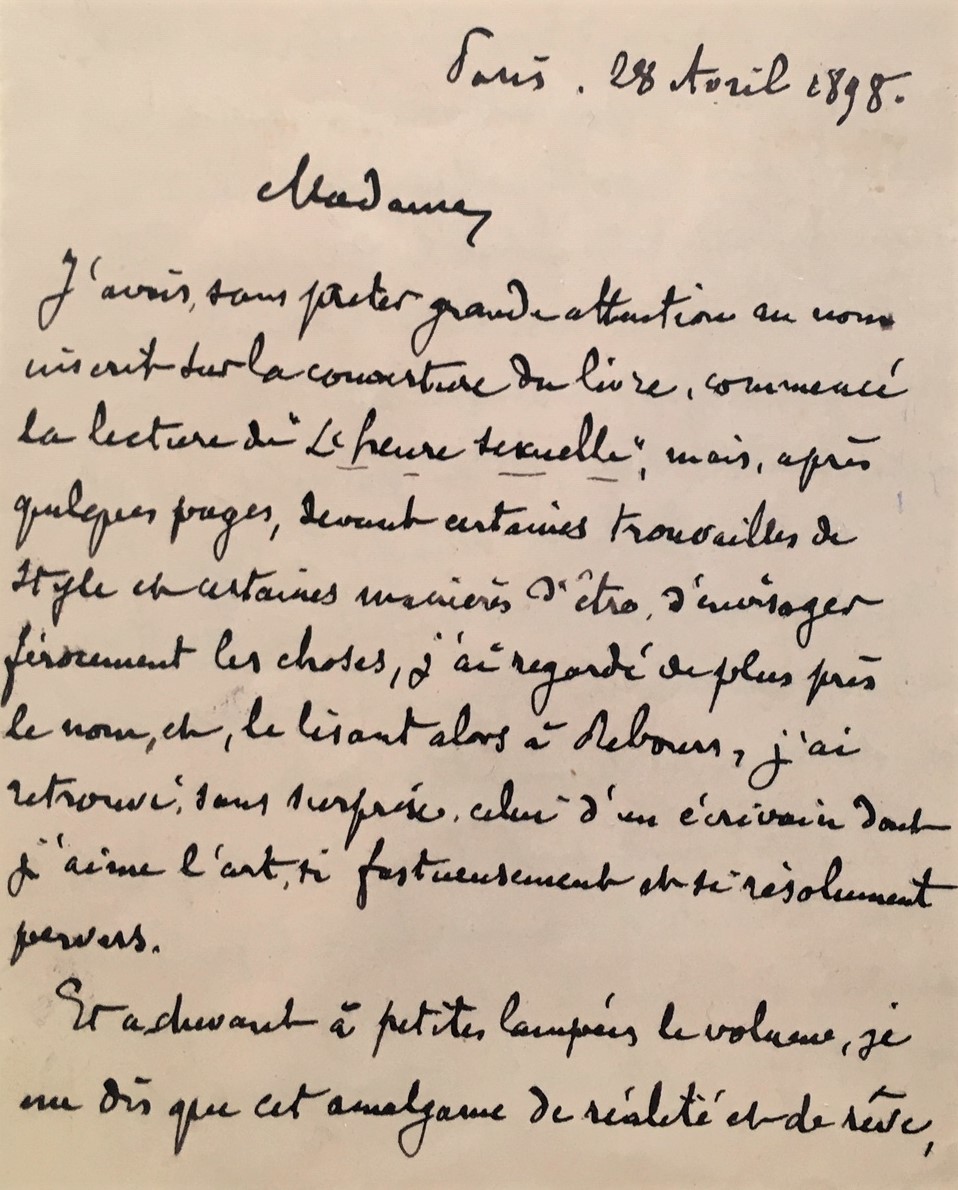 Paris. 28 Avril 1898.
Madame,
J'avais, sans prêter grande attention au nom
inscrit sur la couverture du livre, commencé
la lecture de "L'heure sexuelle", mais, après
quelques pages, devant certaines trouvailles de
style et certaines manières d'être, d'envisager
férocement les choses, j'ai regardé de plus près
le nom, et, le lisant alors à Rebours, j'ai
retrouvé, sans surprise, celui d'un écrivain dont
j'aime l'art, si fastueusement et si résolument
pervers.
Et achevant à petites lampées le volume, je
me dis que cet amalgame de réalité et de rêve,